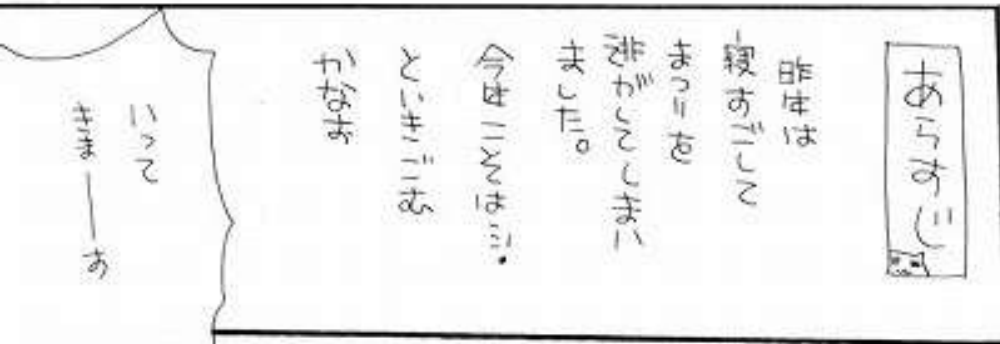 あらすじ
昨年は
寝すごして
まつりを
逃がしてしまい
ました。
今年こそは…。
といきごむ
かなお
いって
きまーーす